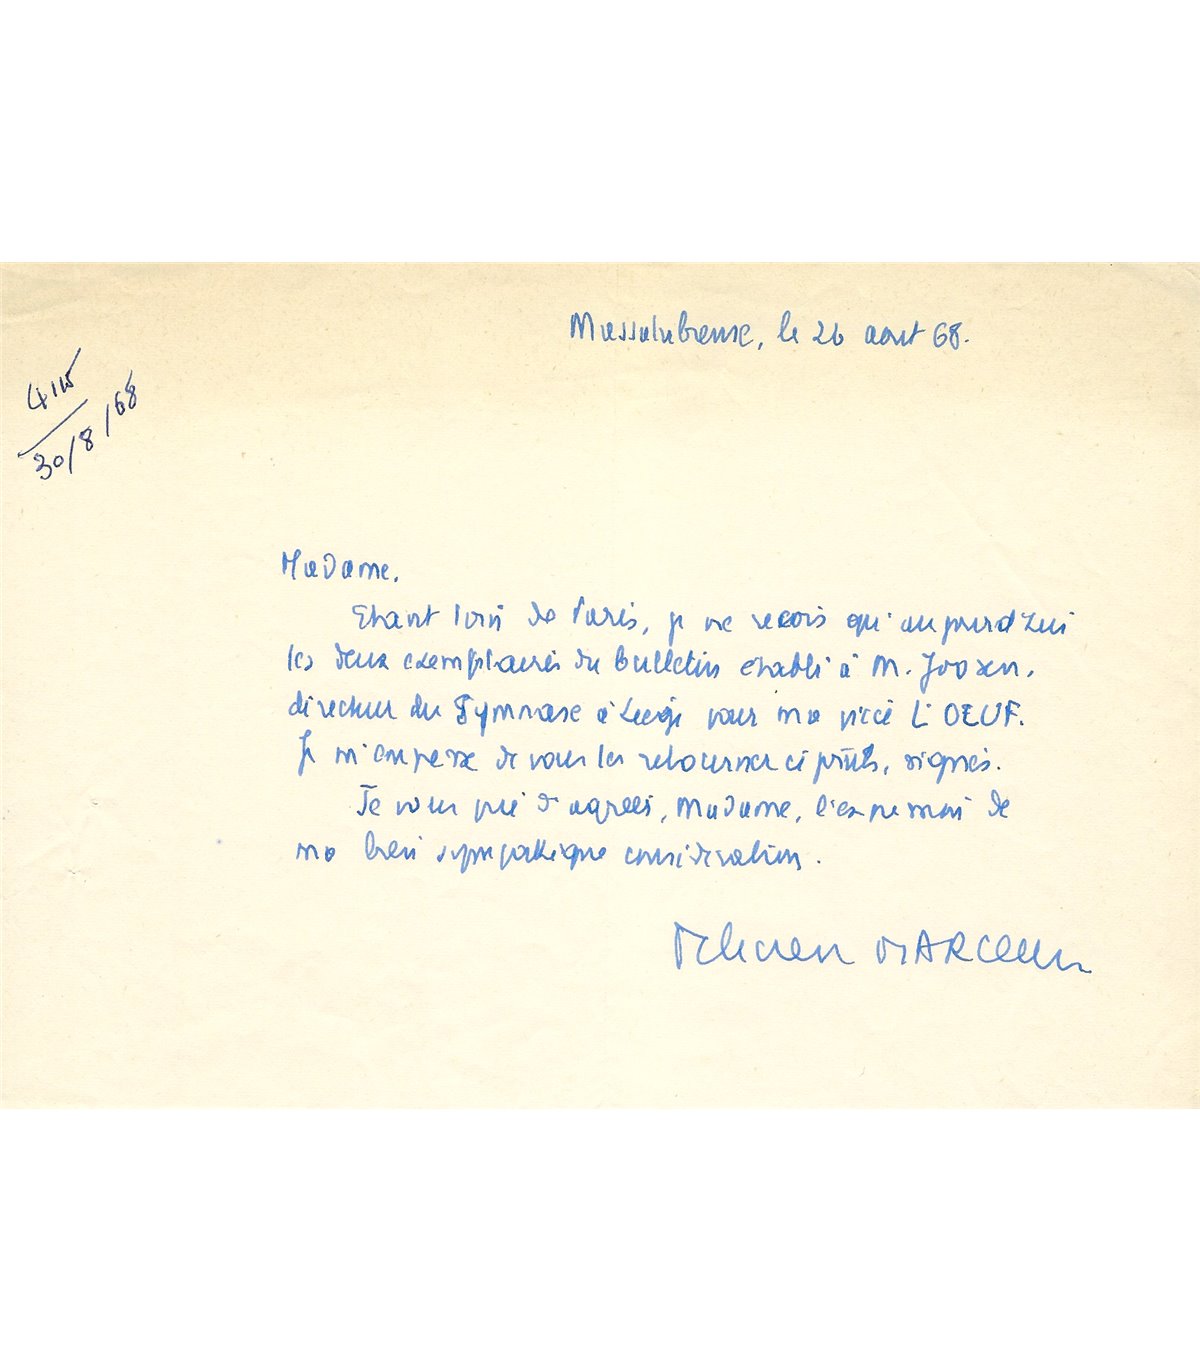 Massalubrense, le 26 aout 68.
30/8/68
Madame,
Etant loin de Paris, je ne reçois qu'aujourd'hui
les deux exemplaires du bulletin etabli à M. Joosen,
directeur du Gymnase à Liège pour ma pièce L'OEUF.
Je m'empresse de vous les retourner ci joints, signés.
Je vous prie d'agréer, Madame, l'expression de
ma bien sympathique consideration.
Félicien MARCEAU